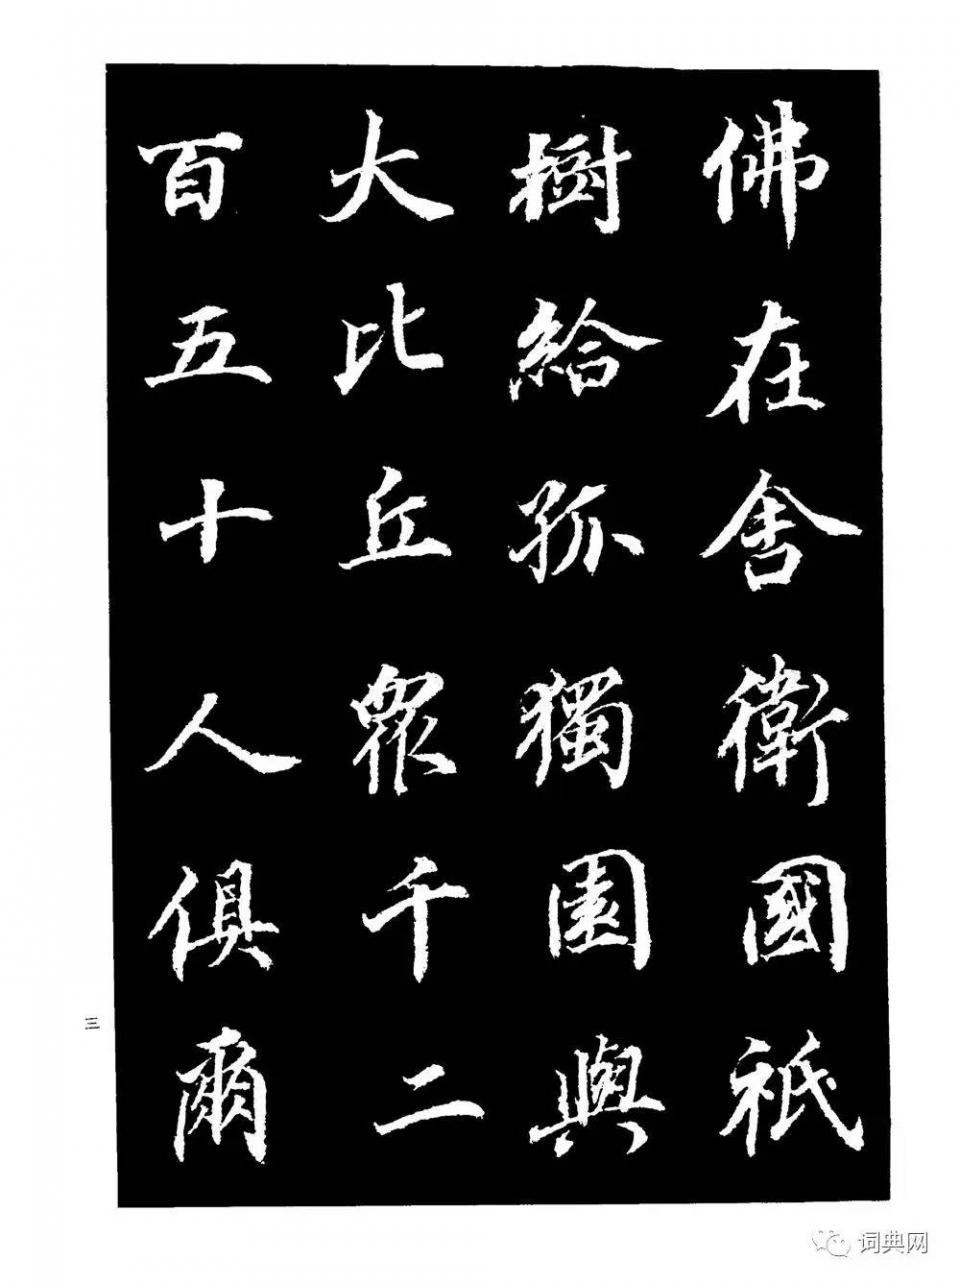 佛在舍衛國祇
樹給孤獨園與
大比丘眾千二
百五十人俱爾
三
词典网